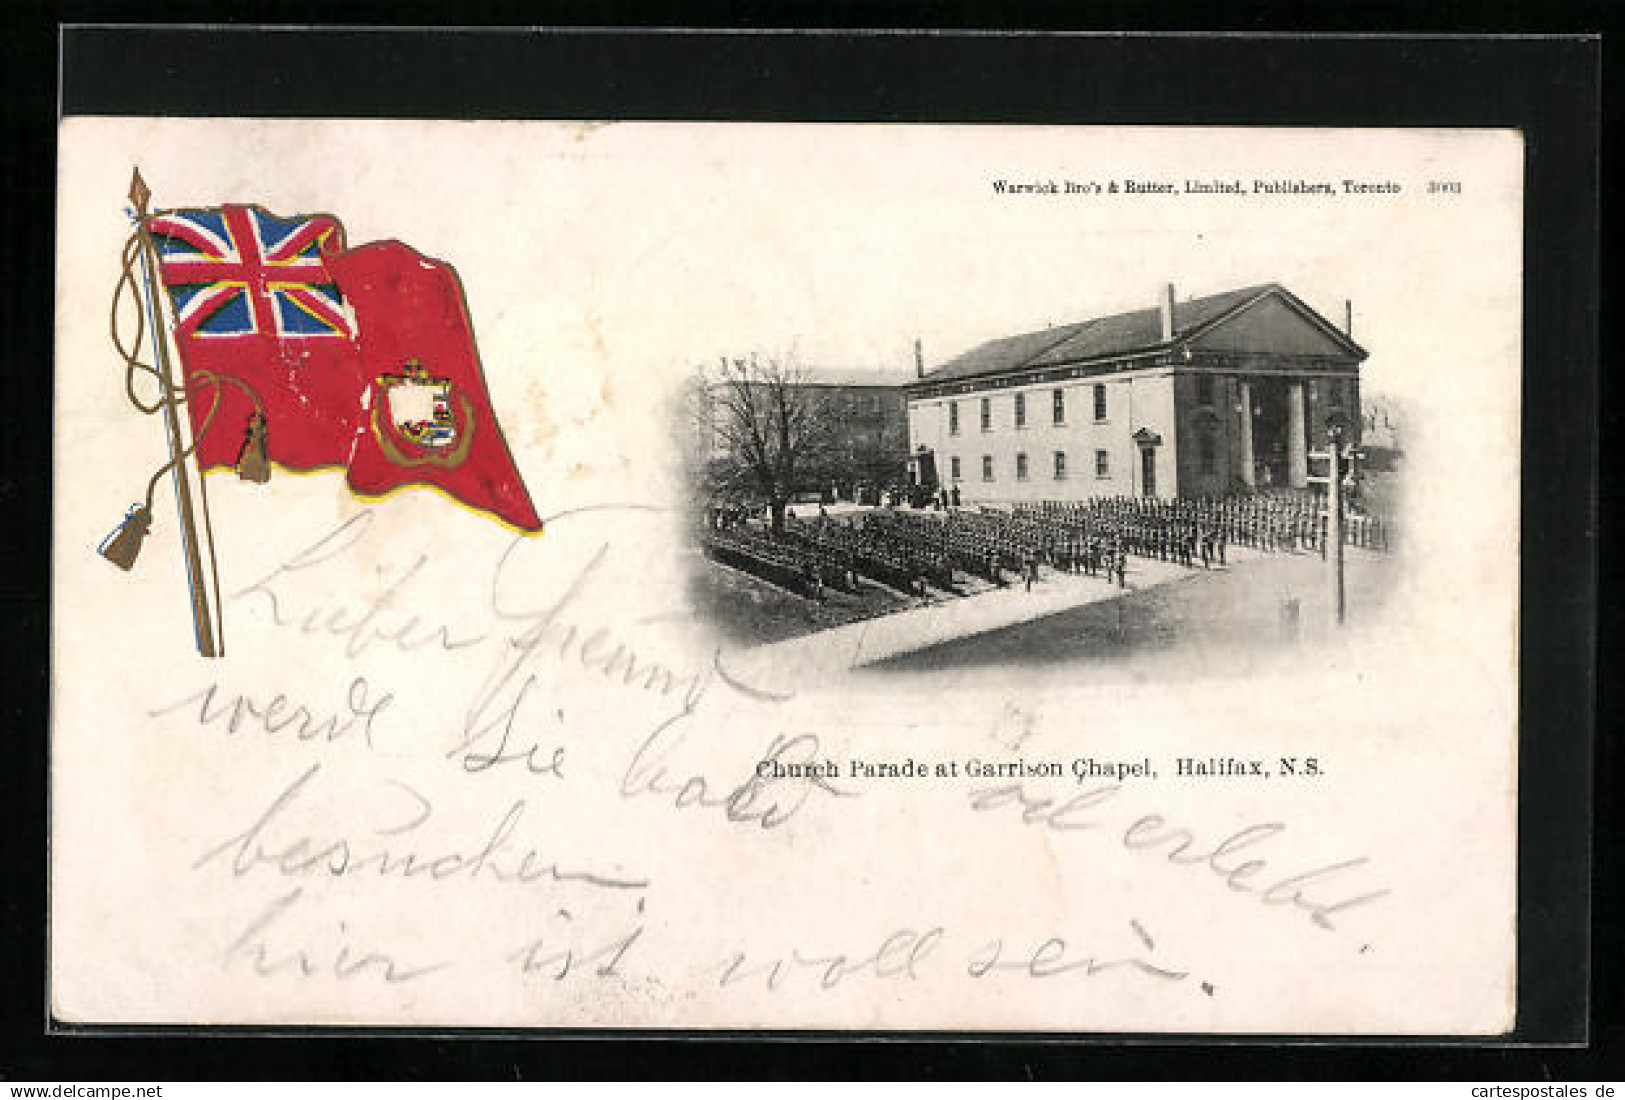 Warwick Bro's & Rutter, Limited, Publishers, Toronto 3003
Lieber Freund
werde Sie bald
Church Parade at Garrison Chapel, Halifax, N.S.
besuchen,
viel erlebt.
hier ist woll sein.
delcampe.net
cartespostales de